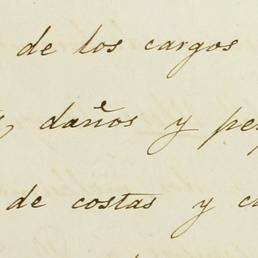 de los cargos
daños y
de costas y